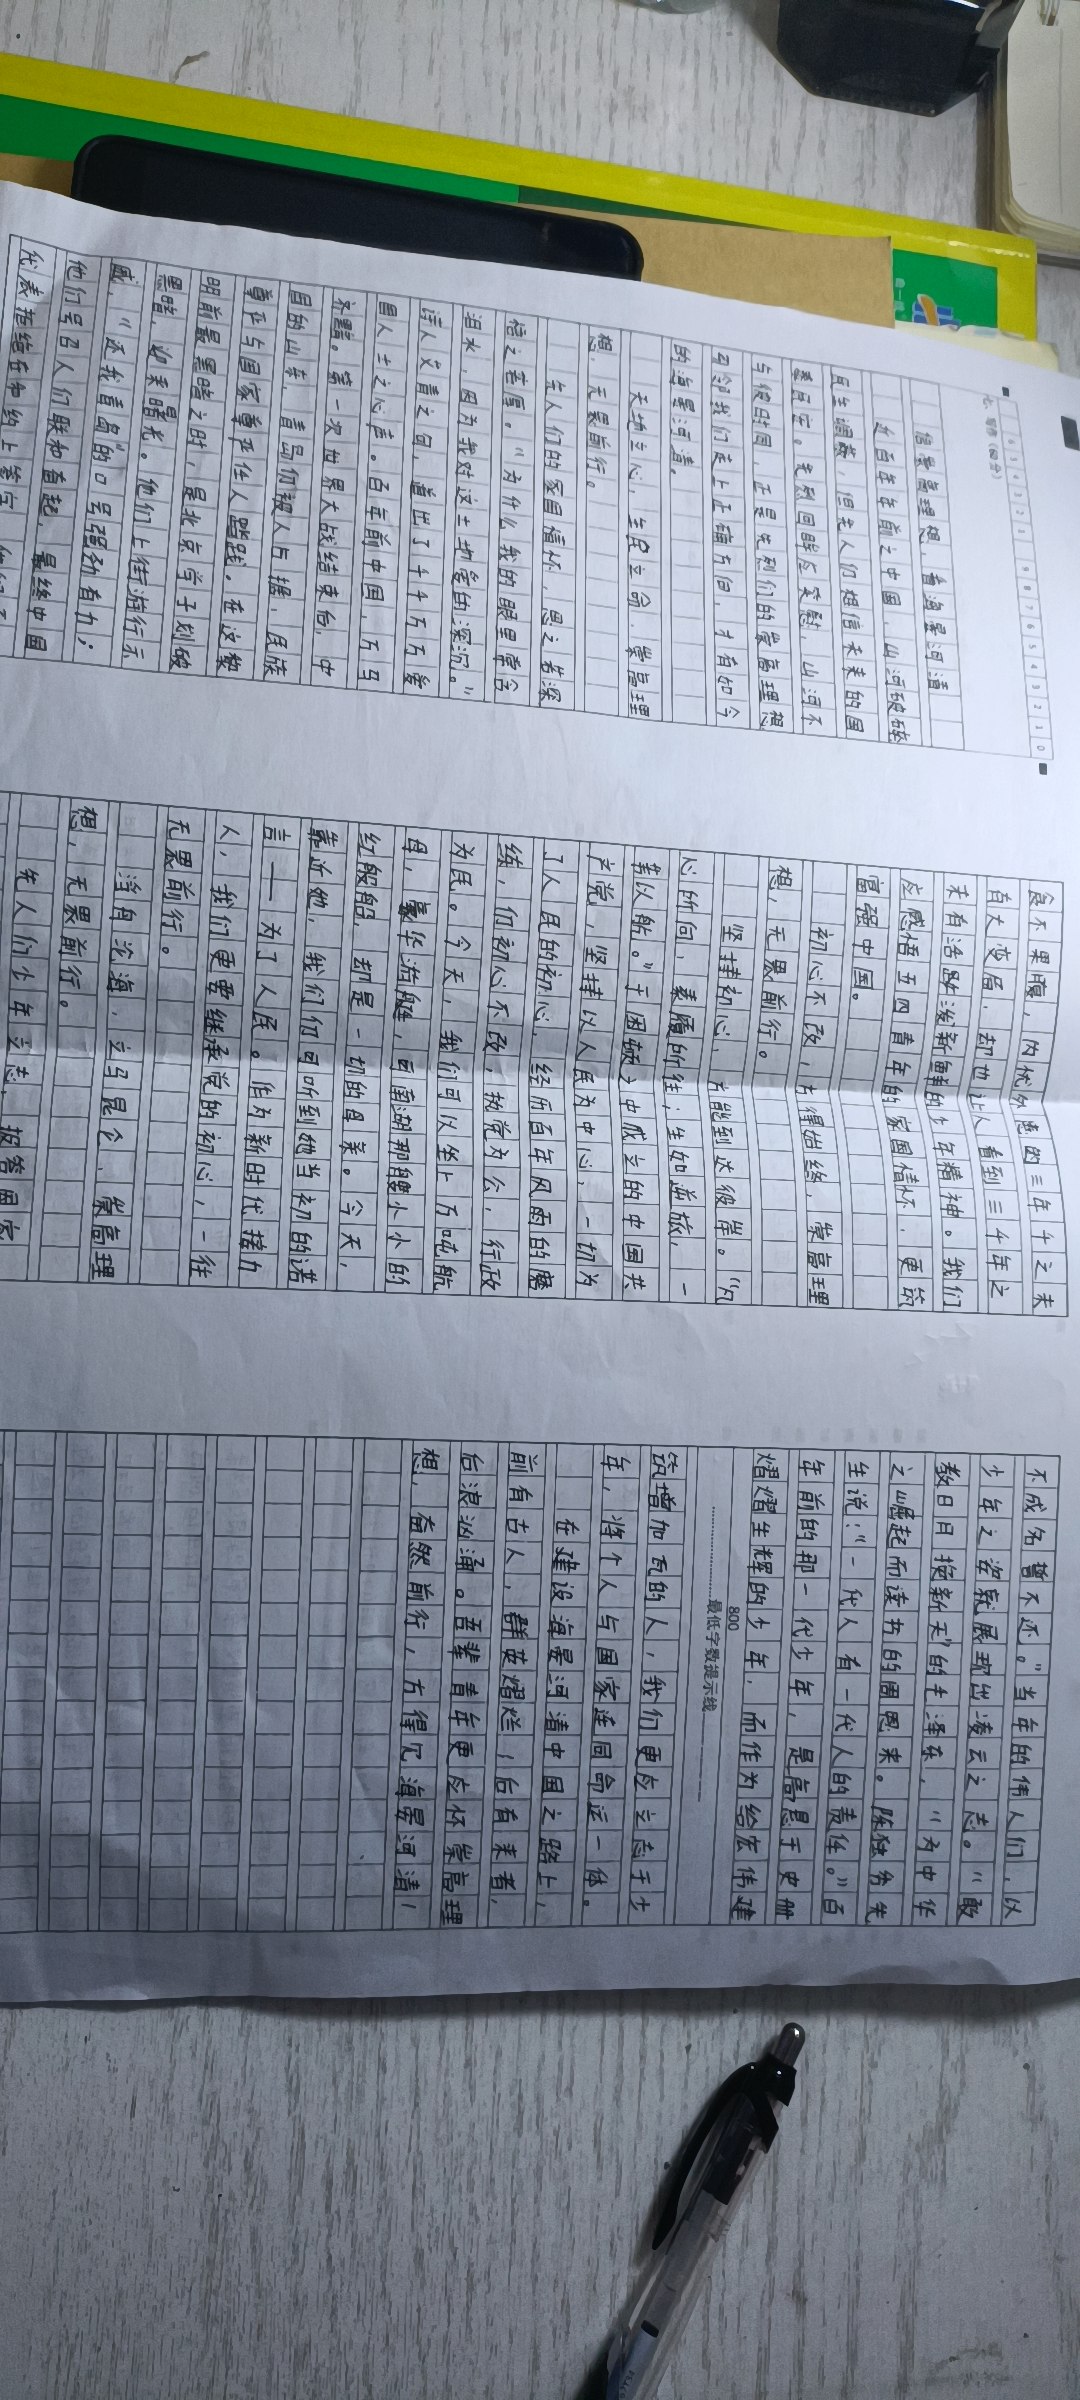 七、写作(60分)
信崇高理想，看海晏河清
近百年年前之中国，山河破碎
民生凋蔽，但先人们相信未来的国
泰月安。先烈回眸应笑慰，山河不
与
正是先烈们的崇高理想
引领我们走上正确方向，才有如今
的海晏河清。
天地立心，生民立命，崇高理
想，无畏前行。
先人们的家国情怀，思之若深
悟之若厚。“为什么我的眼里常含
泪水，因为我对这土地爱的深沉。”
诗人艾青之句，道出了千千万万爱
国人士之心声。百年前中国，万马
齐黯。第一次世界大战结束后，中
国的山东、青岛仍被人占据，民族
尊严与国家尊严任人踏践。在这黎
明前最黑暗之时，是北京学子划破
黑暗，迎来曙光。他们上街游行示
威，“还我青岛”的口号强劲有力；
他们号召人们联和奋起，最终中国
代表拒绝在和约上签字。
食不果腹，内忧外患的三年千之未
有大变局，却也让人看到三千年之
未有活跃泼新鲜的少年精神。我们
应感悟五四青年的家国情怀，更筑
富强中国。
初心不改，方得始终，崇高理
想，无畏前行。
坚持初心，方能到达彼岸。“凡
心所向，素履所往；生如逆旅，一
苇以航。”于困顿之中成立的中国共
产党，坚持以人民为中心，一切为
了人民的初心，经历百年风雨的磨
练，仍初心不改，执党为公，行政
为民。今天，我们可以坐上万吨航
母，豪华游艇，可南湖那艘小小的
红船船，却是一切的母亲。今天，
靠近她，我们仍可听到她当初的诺
言——为了人民。作为新时代接力
人，我们更要继承党的初心，一往
无畏前行。
浮白沧海，立马昆仑，崇高理
想，无畏前行。
先人们少年立志，报答国家
不成名誓不还。”当年的伟人们，以
少年之姿就展现出凌云之志。“敢
教日月换新天”的毛泽东，“为中华
之崛起而读书的周恩来。陈独秀先
生说：“一代人有一代人的责任。”百
年前的那一代少年，是高悬于史册
熠熠生辉的少年，而作为给宏伟建
800
最低字数提示线
筑增加瓦的人，我们更应立志于少
年，将个人与国家连同命运一体。
在建设海晏河清中国之路上，
前有古人，群英熠烂；后有来者，
后浪汹涌。吾辈青年更应怀崇高理
想，奋然前行，方得见海晏河清！